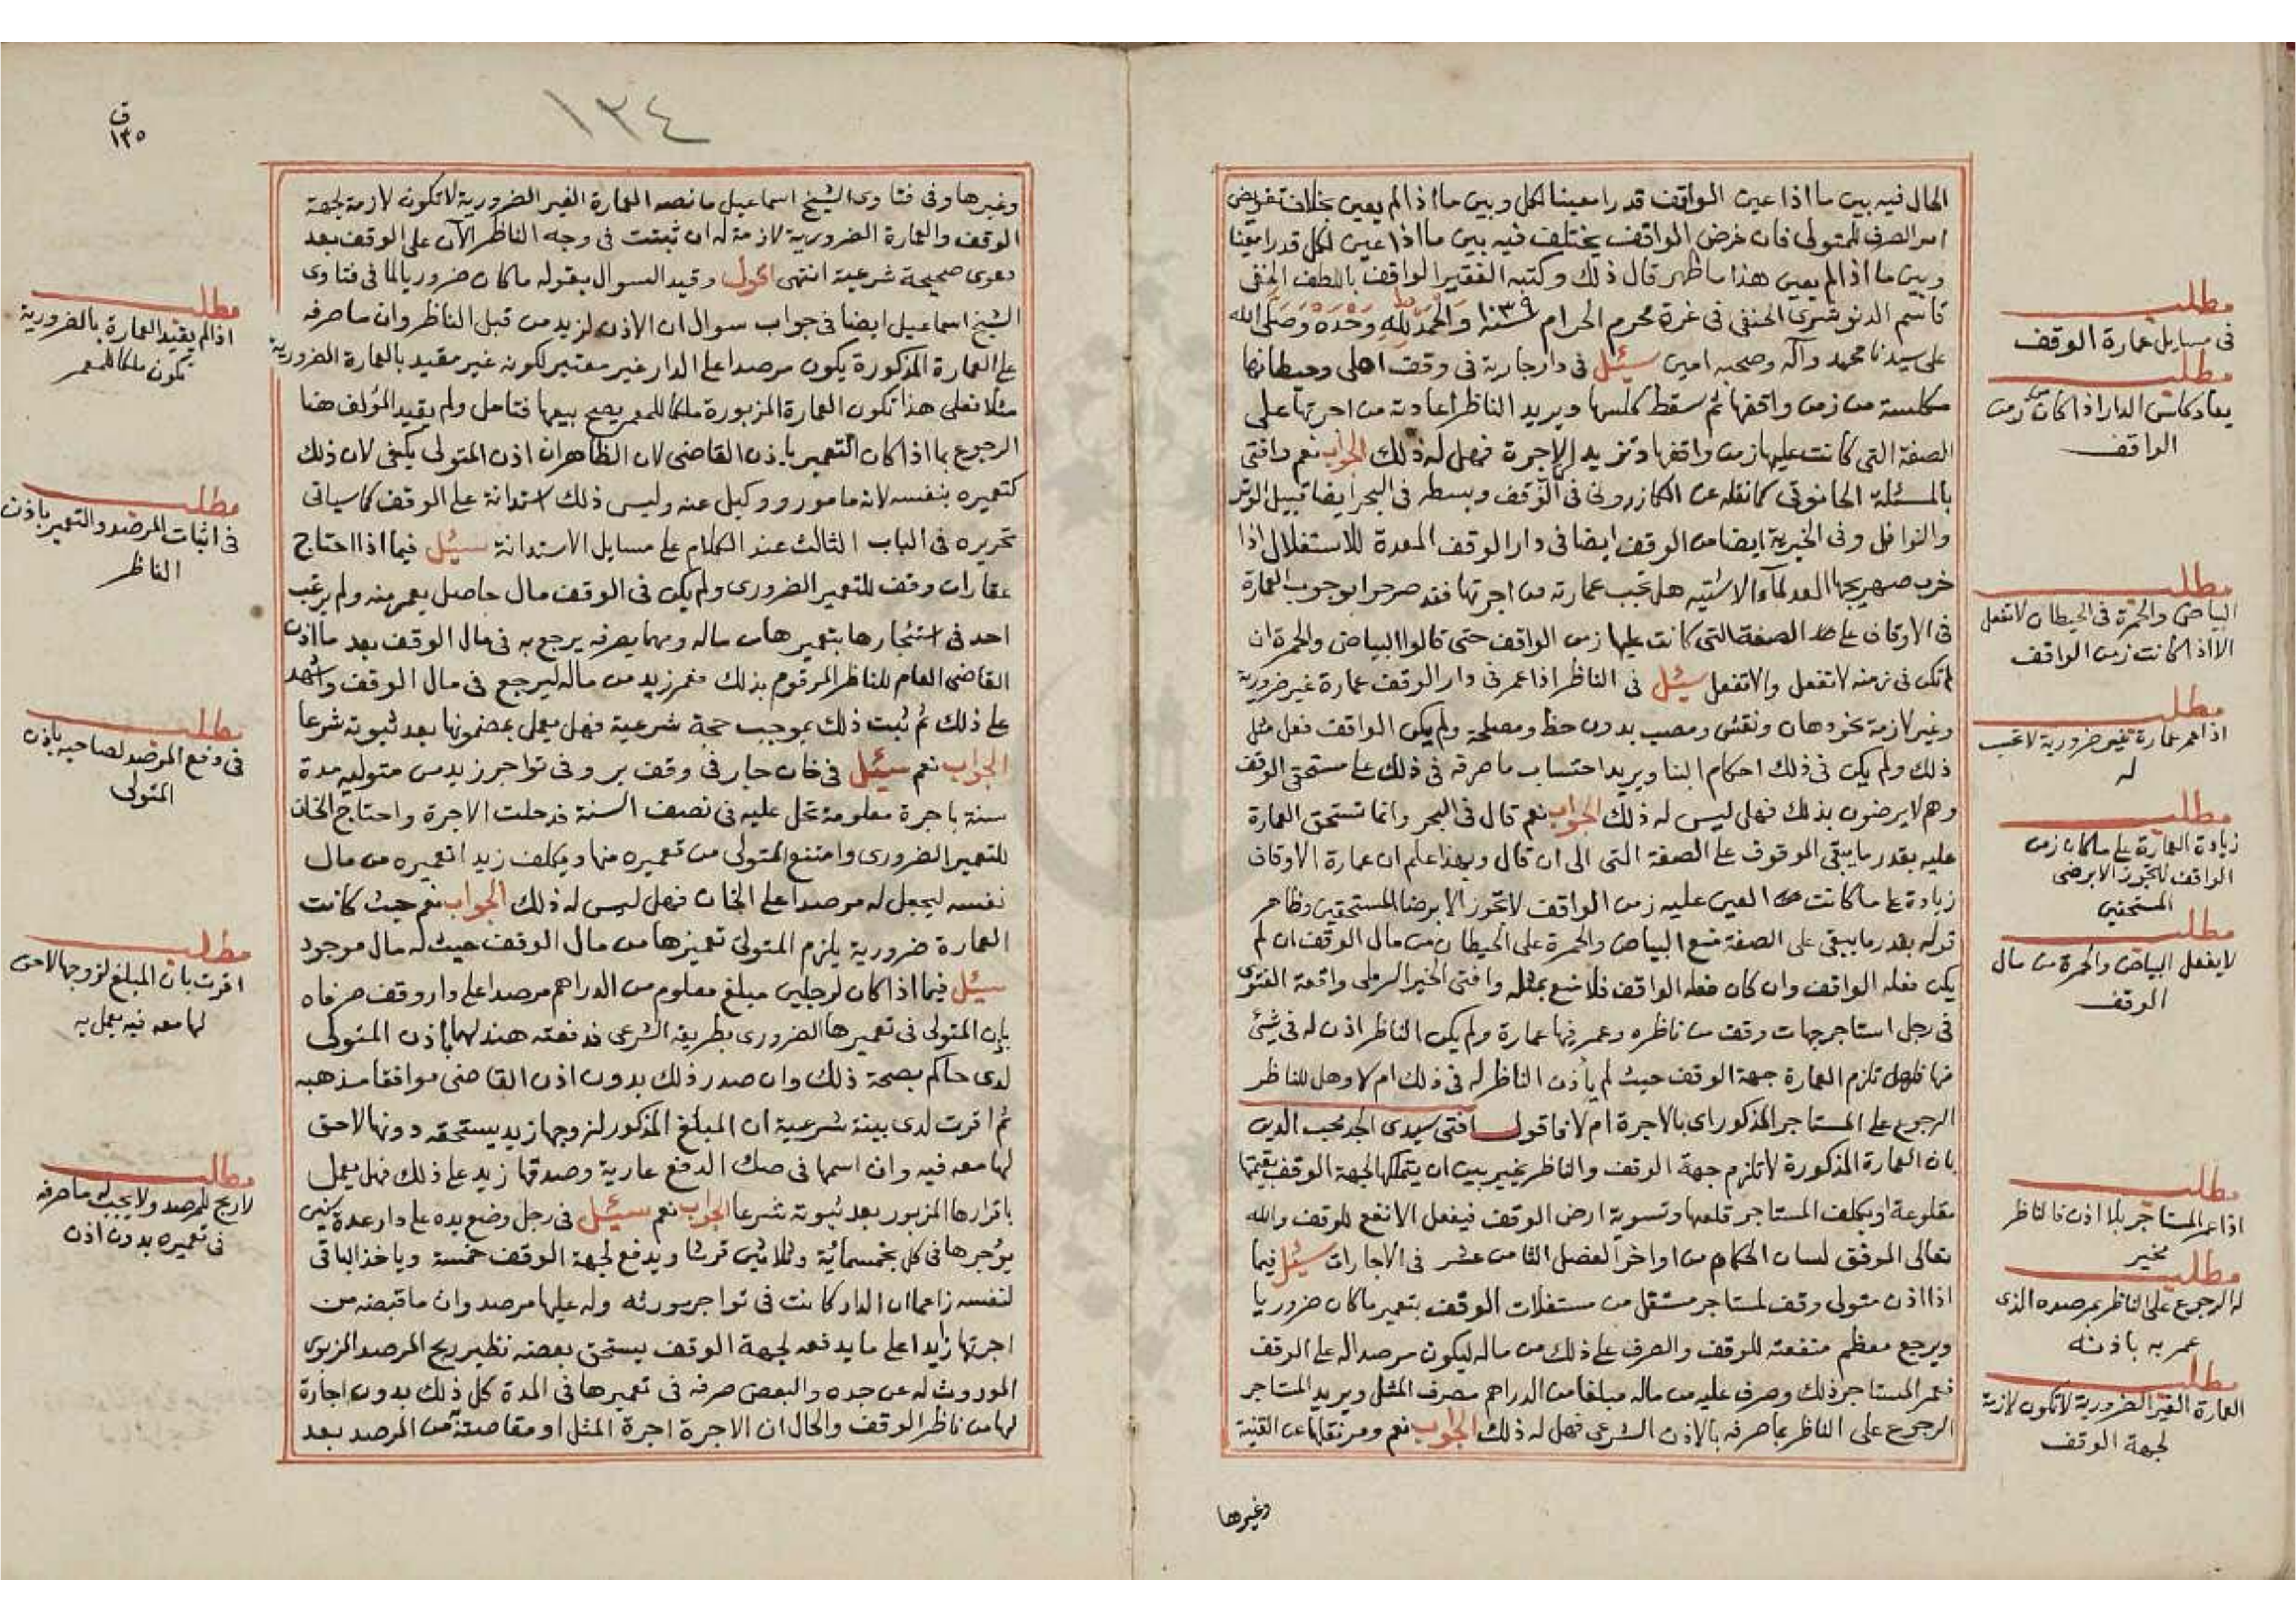 الحال فيه بين ما اذا عين الواقف قدرا معينا لكل وبين ما اذا لم يعين بخلاف تفويض
امر الصرف للمتولي فان غرض الواقف يختلف فيه بين ما اذا عين لكل قدرا معينا
وبين ما اذا لم يعين هذا ما ظهر قال ذلك وكتبه الفقير الواقف باللطف الخفي
قاسم الدنوشري الحنفي في غرة محرم الحرام سنة ١٠٣٩ والحمد لله وحده وصلى الله
على سيدنا محمد وآله وصحبه امين سئل في دار جارية في وقف اهلي وحيطانها
مكلسة من زمن واقفها ثم سقط كلسها ويريد الناظر اعادته من اجرتها على
الصفة التي كانت عليها زمن واقفها وتزيد الاجرة فهل له ذلك الجواب نعم وافتى
بالمسئلة الحانوتي كما نقله عن الكازروني في الوقف وبسطه في البحر ايضا قبيل الوتر
والنوافل وفي الخيرية ايضا من الوقف ايضا في دار الوقف المعدة للاستغلال اذا
خرب صهريجها المعد لماء الاشتيه هل تجب عمارته من اجرتها فقد صرحوا بوجوب العمارة
في الاوقاف على الصفة التي كانت عليها زمن الواقف حتى قالوا البياض والحمرة ان
لم تكن في زمنه لا تفعل والا تفعل سئل في الناظر اذا عمر في دار الوقف عمارة غير ضرورية
وغير لازمة نحو دهان ونقش ومصب بدون حظ ومصلحة ولم يكن الواقف فعل مثل
ذلك ولم يكن في ذلك احكام البنا ويريد احتساب ما صرفه في ذلك على مستحقي الوقف
وهم لا يرضون بذلك فهل ليس له ذلك الجواب نعم قال في البحر وانما تستحق العمارة
عليه بقدر ما يبقى الموقوف على الصفة التي الى ان قال وبهذا علم ان عمارة الاوقاف
زيادة على ما كانت العين عليه زمن الواقف لا تجوز الا برضا المستحقين وظاهر
قوله بقدر ما يبقى على الصفة منع البياض والحمرة على الحيطان من مال الوقف ان لم
يكن فعله الواقف وان كان فعله الواقف فلا منع بمثله وافتى الخير الرملي واقعة الفتوى
في رجل استاجر جهات وقف من ناظره وعمر فيها عمارة ولم يكن الناظر اذن له في شئ
منها فهل تلزم العمارة جهة الوقف حيث لم يأذن الناظر له في ذلك ام لا وهل للناظر
الرجوع على المستاجر المذكور اي بالاجرة ام لا فاقول افتى سيدي الجد محب الدين
بان العمارة المذكورة لا تلزم جهة الوقف والناظر يخير بين ان يتملكها لجهة الوقف بقيمتها
مقلوعة او يكلف المستاجر قلعها وتسوية ارض الوقف فيفعل الانفع للوقف والله
تعالى الموفق لسان الحكام من اواخر الفصل الثامن عشر في الاجارات سئل فيما
اذا اذن متولي وقف لمستاجر مستغل من مستغلات الوقف بتعمير ما كان ضروريا
ويرجع معظم منفعته للوقف والصرف على ذلك من ماله ليكون مرصدا له على الوقف
فعمر المستاجر ذلك وصرف عليه من ماله مبلغا من الدراهم مصرف المثل ويريد المستاجر
الرجوع على الناظر بما صرفه بالاذن الشرعي فهل له ذلك الجواب نعم ومر نقلها عن القنية
وغيرها
مطلب
في مسايل عمارة الوقف
مطلب
يعاد كلس الدار اذا كان من زمن
الواقف
مطلب
البياض والحمرة في الحيطان لا تفعل
الا اذا كانت زمن الواقف
مطلب
اذا عمر عمارة غير ضرورية لا تحسب
له
مطلب
زيادة العمارة على ما كان زمن
الواقف لا تجوز الا برضى
المستحقين
مطلب
لا يفعل البياض والحمرة من مال
الوقف
مطلب
اذا عمر المستاجر بلا اذن فالناظر
مخير
مطلب
له الرجوع على الناظر بمرصده الذي
عمر به باذنه
مطلب
العمارة الغير الضرورية لا تكون لازمة
لجهة الوقف
١٣٤
ق
١٣٥
وغيرها وفي فتاوى الشيخ اسماعيل ما نصه العمارة الغير الضرورية لا تكون لازمة لجهة
الوقف والعمارة الضرورية لازمة له ان ثبتت في وجه الناظر الآن على الوقف بعد
دعوى صحيحة شرعية انتهى اقول وقيد السوال بقوله ما كان ضروريا لما في فتاوى
الشيخ اسماعيل ايضا في جواب سوال ان الاذن لزيد من قبل الناظر وان ما صرفه
على العمارة المذكورة يكون مرصدا على الدار غير معتبر لكونه غير مقيد بالعمارة الضرورية
مثلا فعلى هذا تكون العمارة المزبورة ملكا للمعمر يصح بيعها فتامل ولم يقيد المؤلف هنا
الرجوع بما اذا كان التعمير باذن القاضي لان الظاهر ان اذن المتولي يكفي لان ذلك
كتعميره بنفسه لانه مامور ووكيل عنه وليس ذلك استدانة على الوقف كما سياتي
تحريره في الباب الثالث عند الكلام على مسايل الاستدانة سئل فيما اذا احتاج
عقارات وقف للتعمير الضروري ولم يكن في الوقف مال حاصل يعمر منه ولم يرغب
احد في استئجارها بتعميرها من ماله ومهما يصرفه يرجع به في مال الوقف بعد ما اذن
القاضي العام للناظر المرقوم بذلك فعمر زيد من ماله ليرجع في مال الوقف واشهد
على ذلك ثم ثبت ذلك بموجب حجة شرعية فهل يعمل بمضمونها بعد ثبوته شرعا
الجواب نعم سئل في خان جار في وقف بر وفي تواجر زيد من متوليه مدة
سنة باجرة معلومة تحل عليه في نصف السنة فحلت الاجرة واحتاج الخان
للتعمير الضروري وامتنع المتولي من تعميره منها ويكلف زيدا تعميره من مال
نفسه ليجعل له مرصدا على الخان فهل ليس له ذلك الجواب نعم حيث كانت
العمارة ضرورية يلزم المتولي تعميرها من مال الوقف حيث له مال موجود
سئل فيما اذا كان لرجلين مبلغ معلوم من الدراهم مرصد على دار وقف صرفاه
باذن المتولي في تعميرها الضروري بطريقه الشرعي فدفعته هند لهما باذن المتولي
لدى حاكم بصحة ذلك وان صدر ذلك بدون اذن القاضي موافقا مذهبه
ثم اقرت لدى بينة شرعية ان المبلغ المذكور لزوجها زيد يستحقه دونها لا حق
لها معه فيه وان اسمها في صك الدفع عارية وصدقها زيد على ذلك فهل يعمل
باقرارها المزبور بعد ثبوته شرعا الجواب نعم سئل في رجل وضع يده على دار عدة سنين
يؤجرها في كل بخمسمائة وثلاثين قرشا ويدفع لجهة الوقف خمسة وياخذ الباقي
لنفسه زاعما ان الدار كانت في تواجر مورثه وله عليها مرصد وان ما قبضه من
اجرتها زايدا على ما يدفعه لجهة الوقف يستحق بعضه نظير ربح المرصد المزبور
الموروث له عن جده والبعض صرفه في تعميرها في المدة كل ذلك بدون اجارة
لها من ناظر الوقف والحال ان الاجرة اجرة المثل او مقاصته من المرصد بعد
مطلب
اذا لم يقيد العمارة بالضرورية
تكون ملكا للمعمر
مطلب
في اثبات المرصد والتعمير باذن
الناظر
مطلب
في دفع المرصد لصاحبه باذن
المتولي
مطلب
اقرت بان المبلغ لزوجها لا حق
لها معه فيه يعمل به
مطلب
لا ربح للمرصد ولا يحسب له ما صرفه
في تعميره بدون اذن